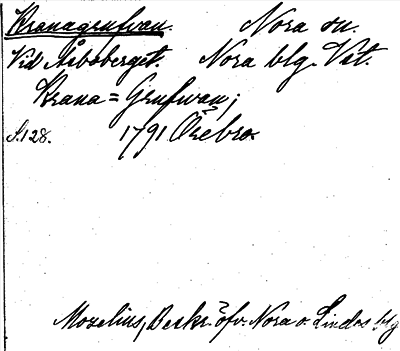 Kranagrufvan. Nora sn.
Vid Åsboberget. Nora blg. Vst.
Krana=Grufwan;
S.128. 1791 Örebro
Mozelius, Beskr. öfv. Nora o. Lindes blg